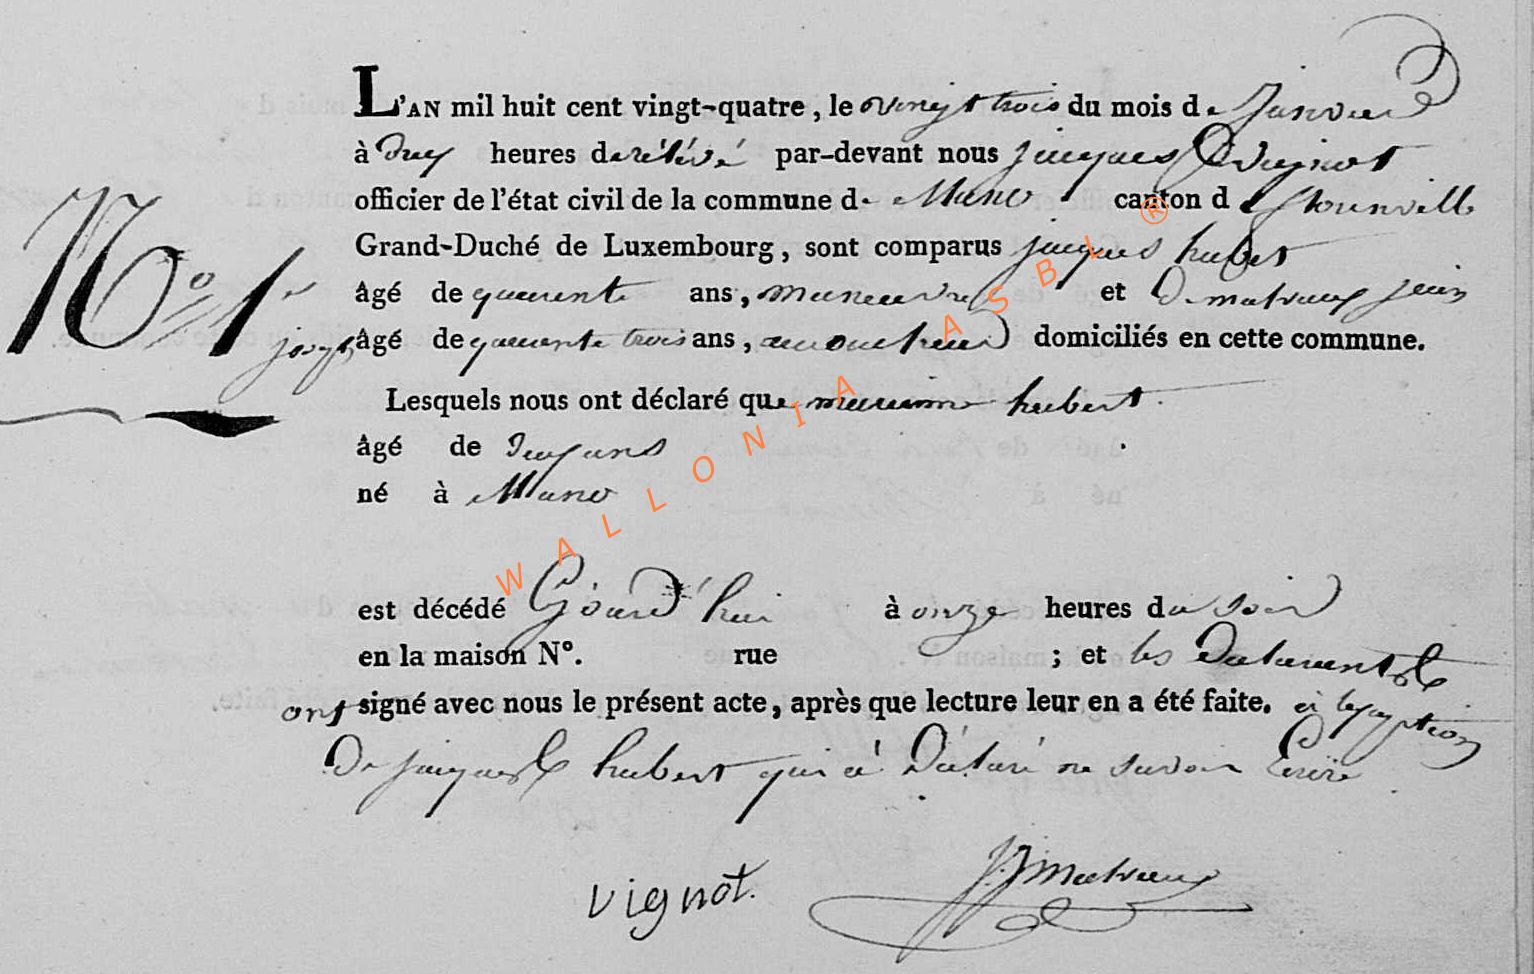 L'AN mil huit cent vingt-quatre, le vingt trois du mois de Janvier
à dix heures de rélévé par-devant nous jacques vignot
officier de l'état civil de la commune de Muno canton de florenville
Grand-Duché de Luxembourg, sont comparus jacques hubert
N° 1er
âgé de quarente ans, maneuvre et matraux jean
joseph âgé de quarente trois ans, domiciliés en cette commune.
Lesquels nous ont déclaré que marianne hubert
âgé de dix ans
né à Muno
est décédé Cejourd'hui à onze heures du soir
en la maison N°. rue ; et les Déclarents
ont signé avec nous le présent acte, après que lecture leur en a été faite. à lexeption
De jacques hubert qui à Déclaré ne savoir Ecrire
vignot.
J.J matraux
WALLONIA ASBL ®